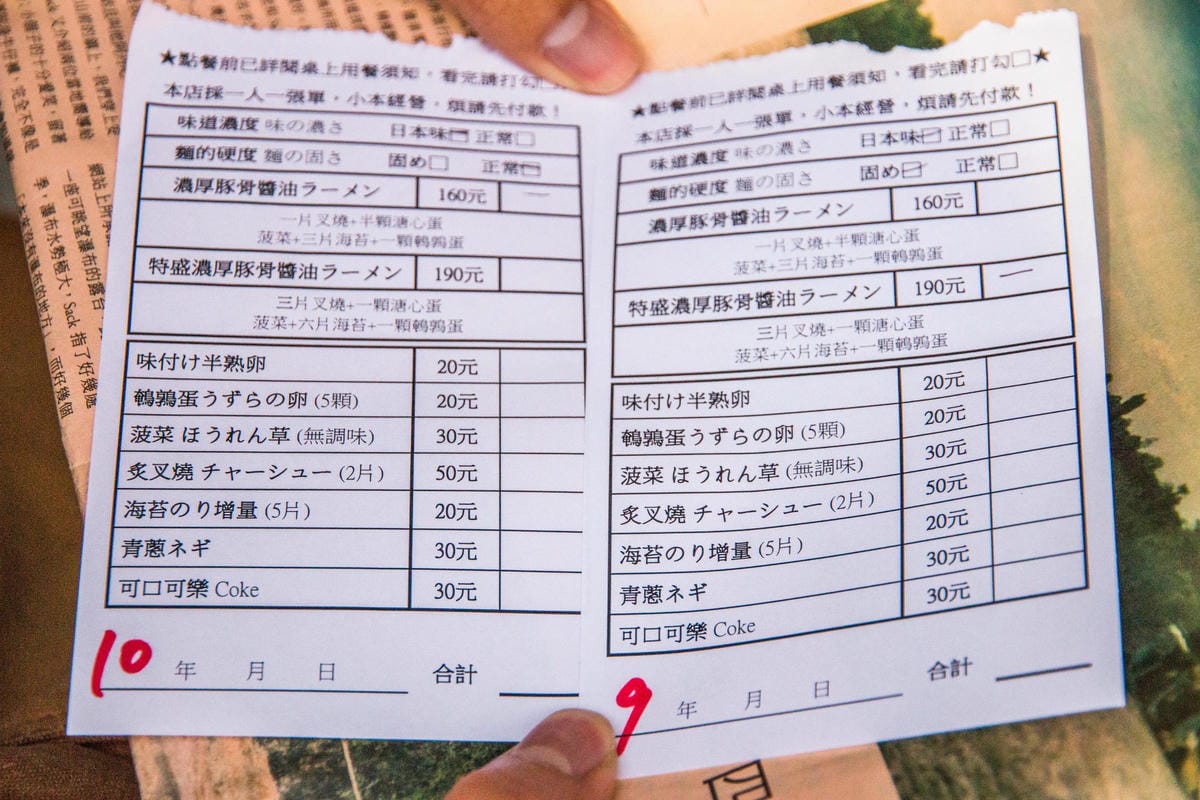 ★點餐前已詳閱桌上用餐須知，看完請打勾
本店採一人一張單，小本經營，煩請先付款！
味道濃度 味の濃さ 日本味□ 正常□
麵的硬度 麵の固さ 固め□ 正常□
濃厚豚骨醬油ラーメン 160元
一片叉燒+半顆溏心蛋
菠菜+三片海苔+一顆鵪鶉蛋
特盛濃厚豚骨醬油ラーメン 190元
三片叉燒+一顆溏心蛋
菠菜+六片海苔+一顆鵪鶉蛋
味付け半熟卵 20元
鵪鶉蛋うずらの卵 (5顆) 20元
菠菜 ほうれん草 (無調味) 30元
炙叉燒 チャーシュー (2片) 50元
海苔のり增量 (5片) 20元
青蔥ネギ 30元
可口可樂 Coke 30元
10 年 月 日 合計
★點餐前已詳閱桌上用餐須知，看完請打勾□★
本店採一人一張單，小本經營，煩請先付款！
味道濃度 味の濃さ 日本味□ 正常□
麵的硬度 麵の固さ 固め□ 正常□
濃厚豚骨醬油ラーメン 160元
一片叉燒+半顆溏心蛋
菠菜+三片海苔+一顆鵪鶉蛋
特盛濃厚豚骨醬油ラーメン 190元
三片叉燒+一顆溏心蛋
菠菜+六片海苔+一顆鵪鶉蛋
味付け半熟卵 20元
鵪鶉蛋うずらの卵 (5顆) 20元
菠菜 ほうれん草 (無調味) 30元
炙叉燒 チャーシュー (2片) 50元
海苔のり增量 (5片) 20元
青蔥ネギ 30元
可口可樂 Coke 30元
9 年 月 日 合計
一座可眺望瀑布的露台
季，瀑布水勢極大，Sack 指了好幾處
，而好幾個